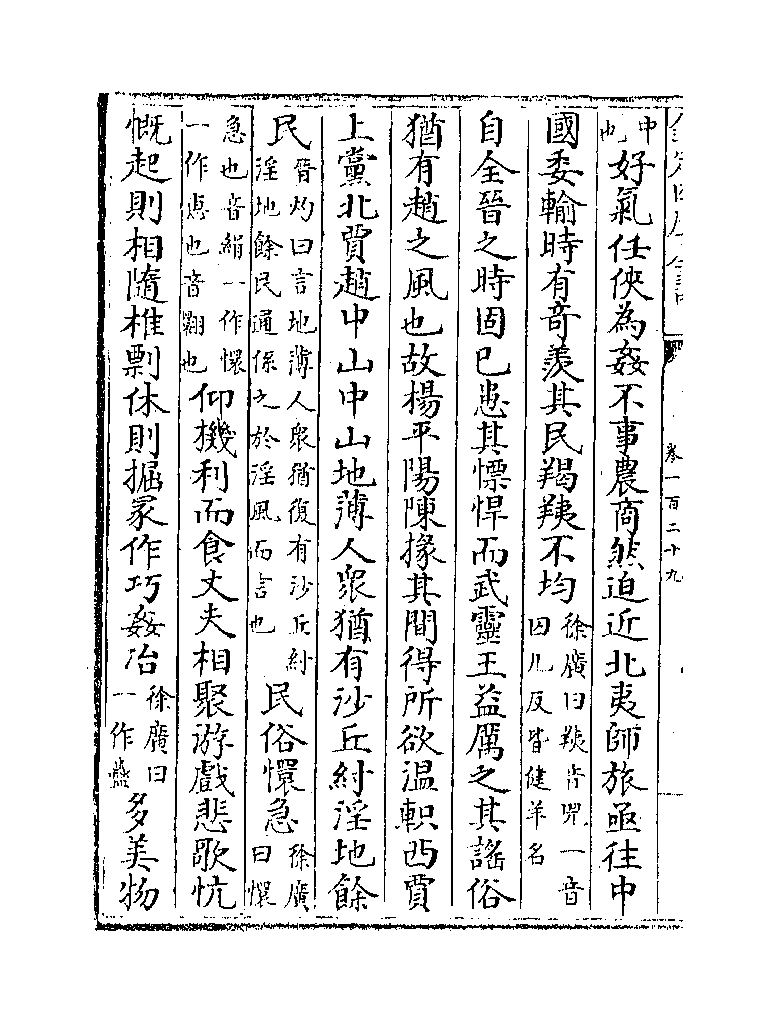 欽定四庫全書
卷一百二十九
中也好氣任俠為姦不事農商然迫近北夷師旅亟往中
國委輸時有奇羨其民羯羠不均徐廣曰羠音兕一音囚几反皆健羊名
自全晉之時固已患其慓悍而武靈王益厲之其謠俗
猶有趙之風也故楊平陽陳掾其間得所欲温軹西賈
上黨北賈趙中山中山地薄人衆猶有沙丘紂淫地餘
民晉灼曰言地薄人衆猶復有沙丘紂淫地餘民通係之於淫風而言也民俗懁急徐廣曰懁
急也音絹一作懁一作惠也音翾也仰機利而食丈夫相聚游戲悲歌忼
慨起則相隨椎剽休則掘冢作巧姦冶徐廣曰一作蠱多美物